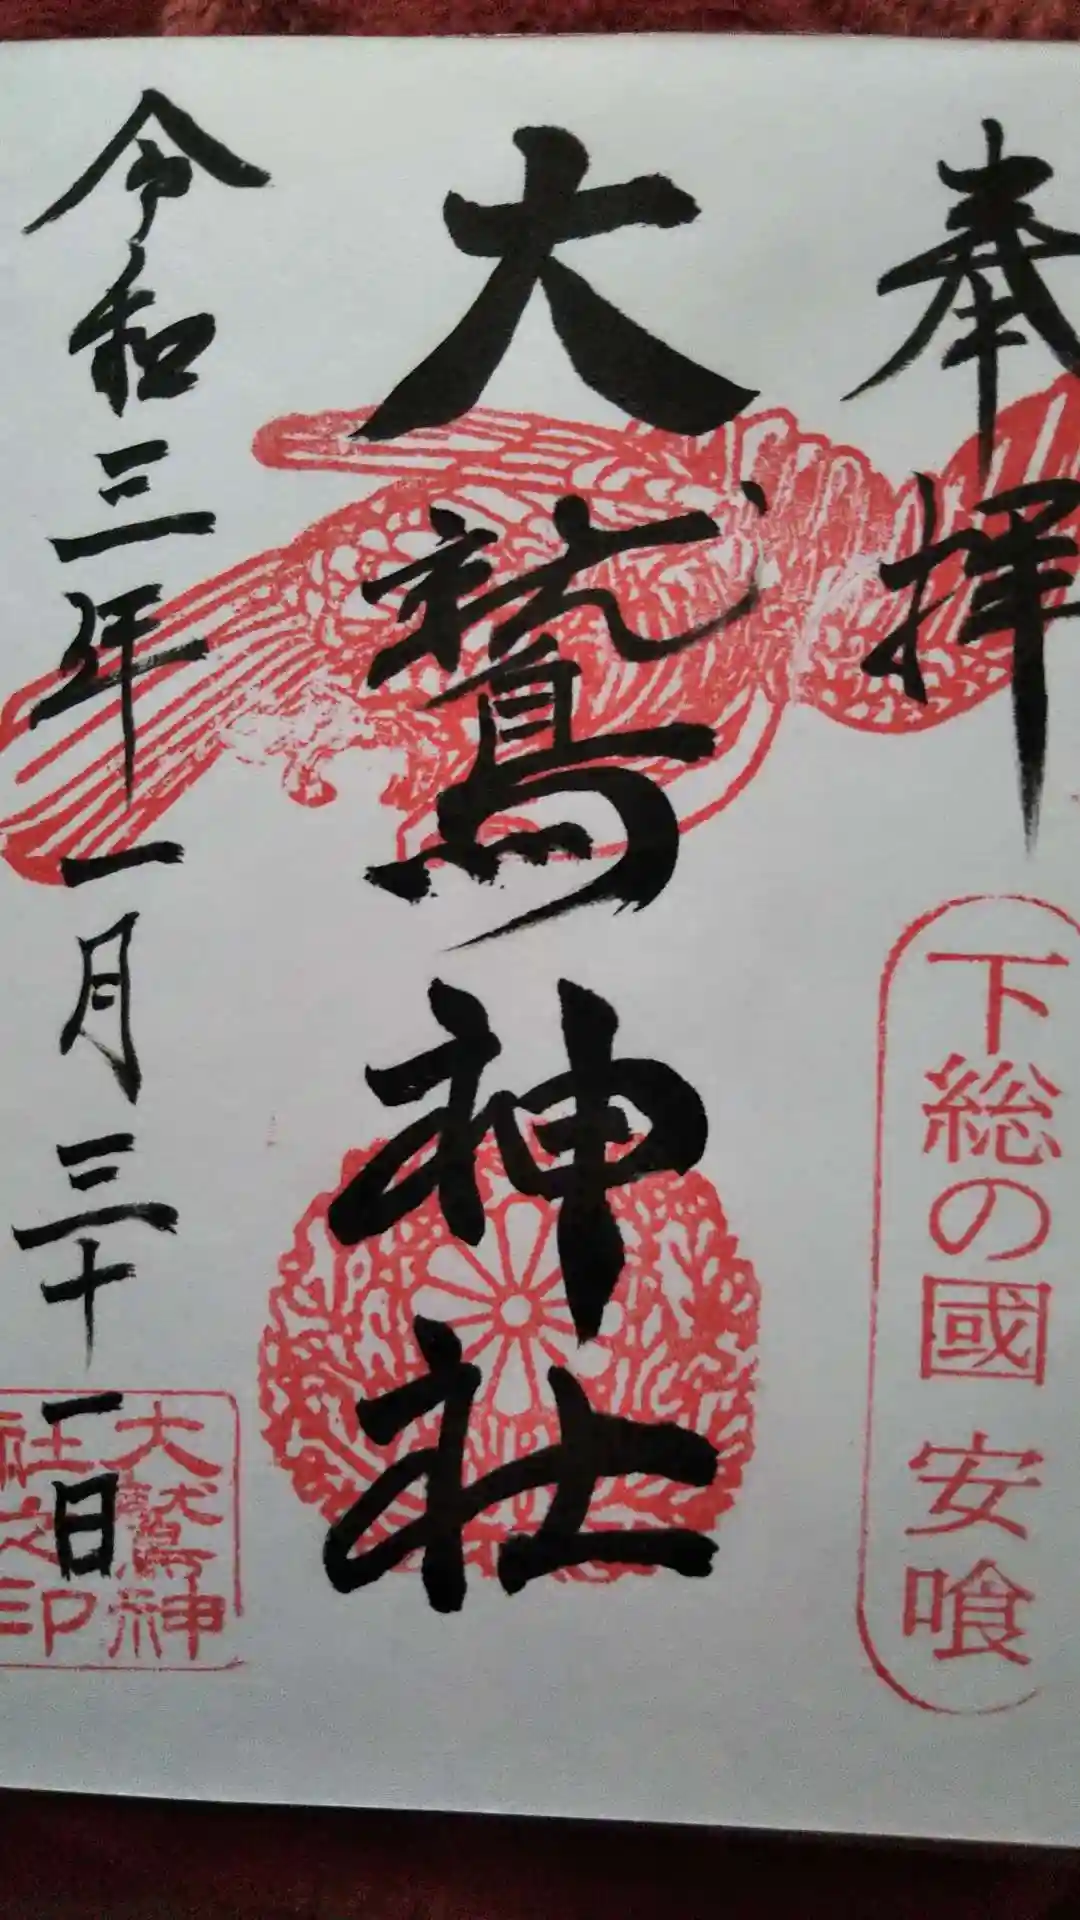 奉拝
下総の國 安喰
大鷲神社
令和三年一月三十一日
大鷲神
社之印